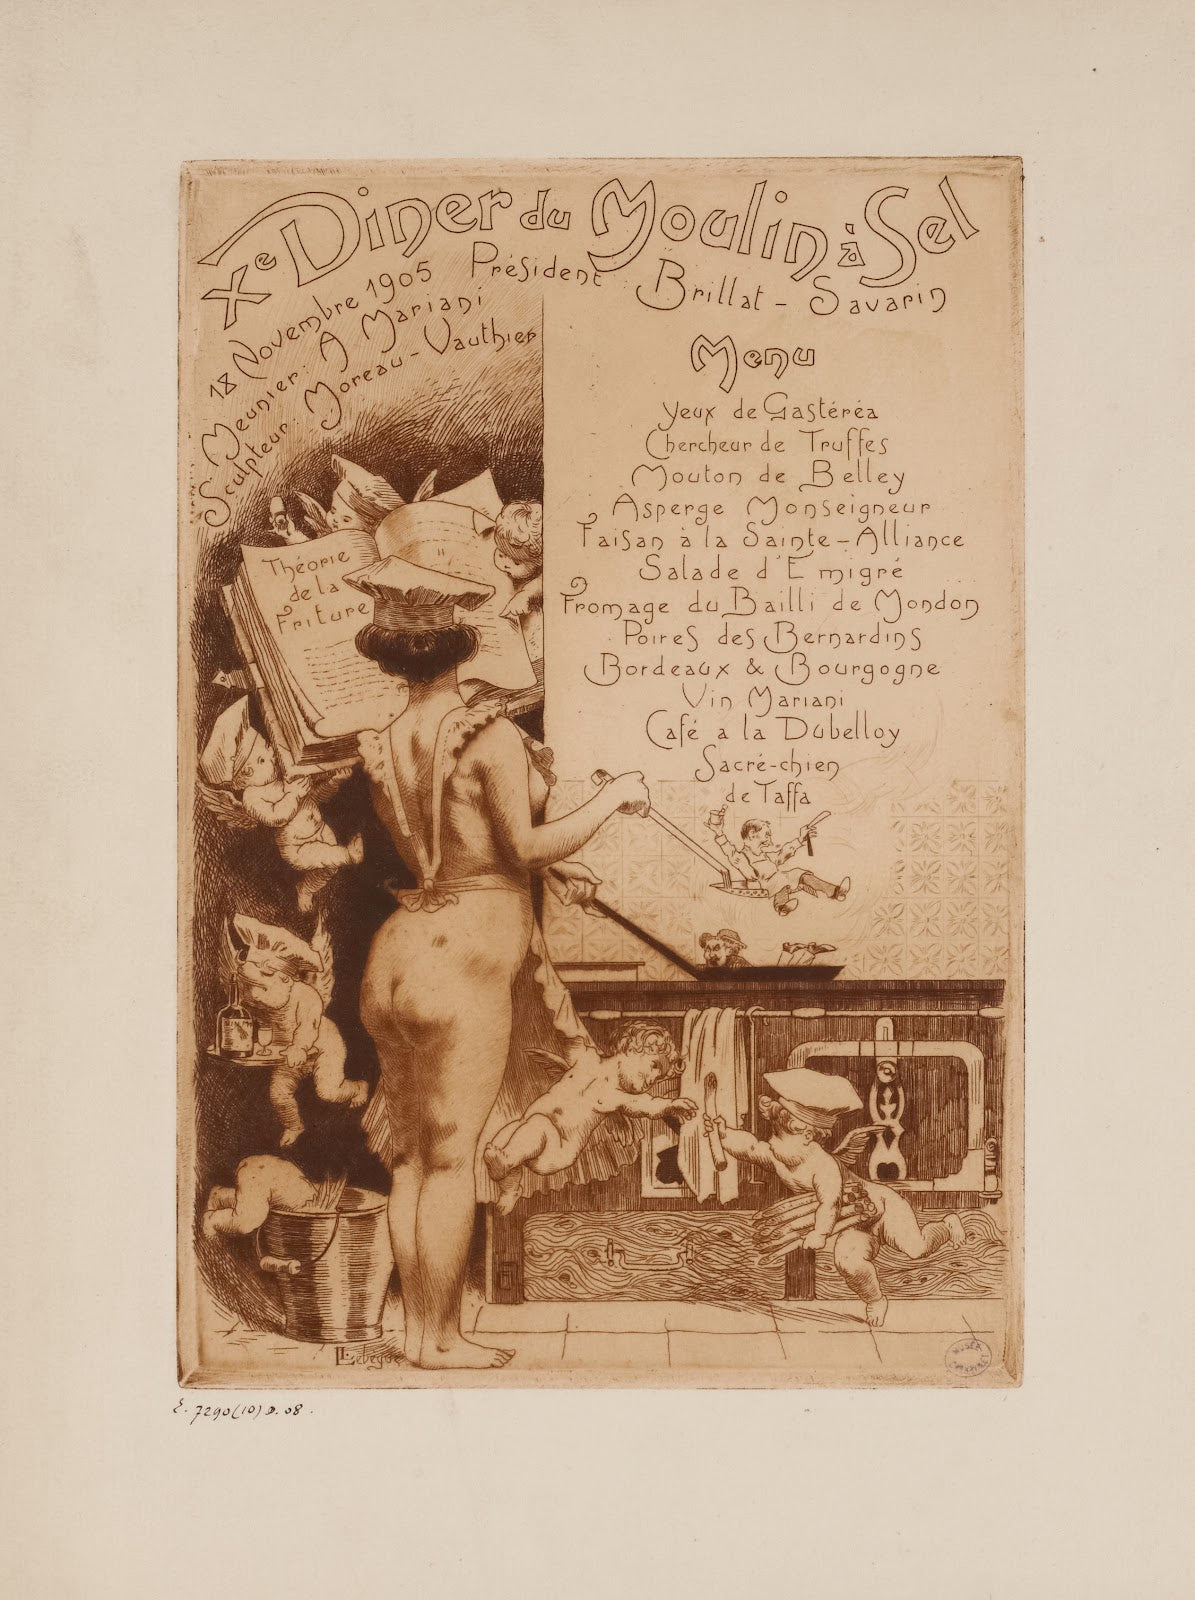 Xe Diner du Moulin à Sel
18 Novembre 1905
Président Brillat-Savarin
Meunier: A Mariani
Sculpteur: Moreau-Vauthier
Menu
Yeux de Gastéréa
Chercheur de Truffes
Mouton de Belley
Asperge Monseigneur
Faisan à la Sainte-Alliance
Salade d'Emigré
Fromage du Bailli de Mondon
Poires des Bernardins
Bordeaux & Bourgogne
Vin Mariani
Café a la Dubelloy
Sacré-chien
de Taffa
Théorie
de la
Friture
L Lebegue
E. 7290(10) D. 08.